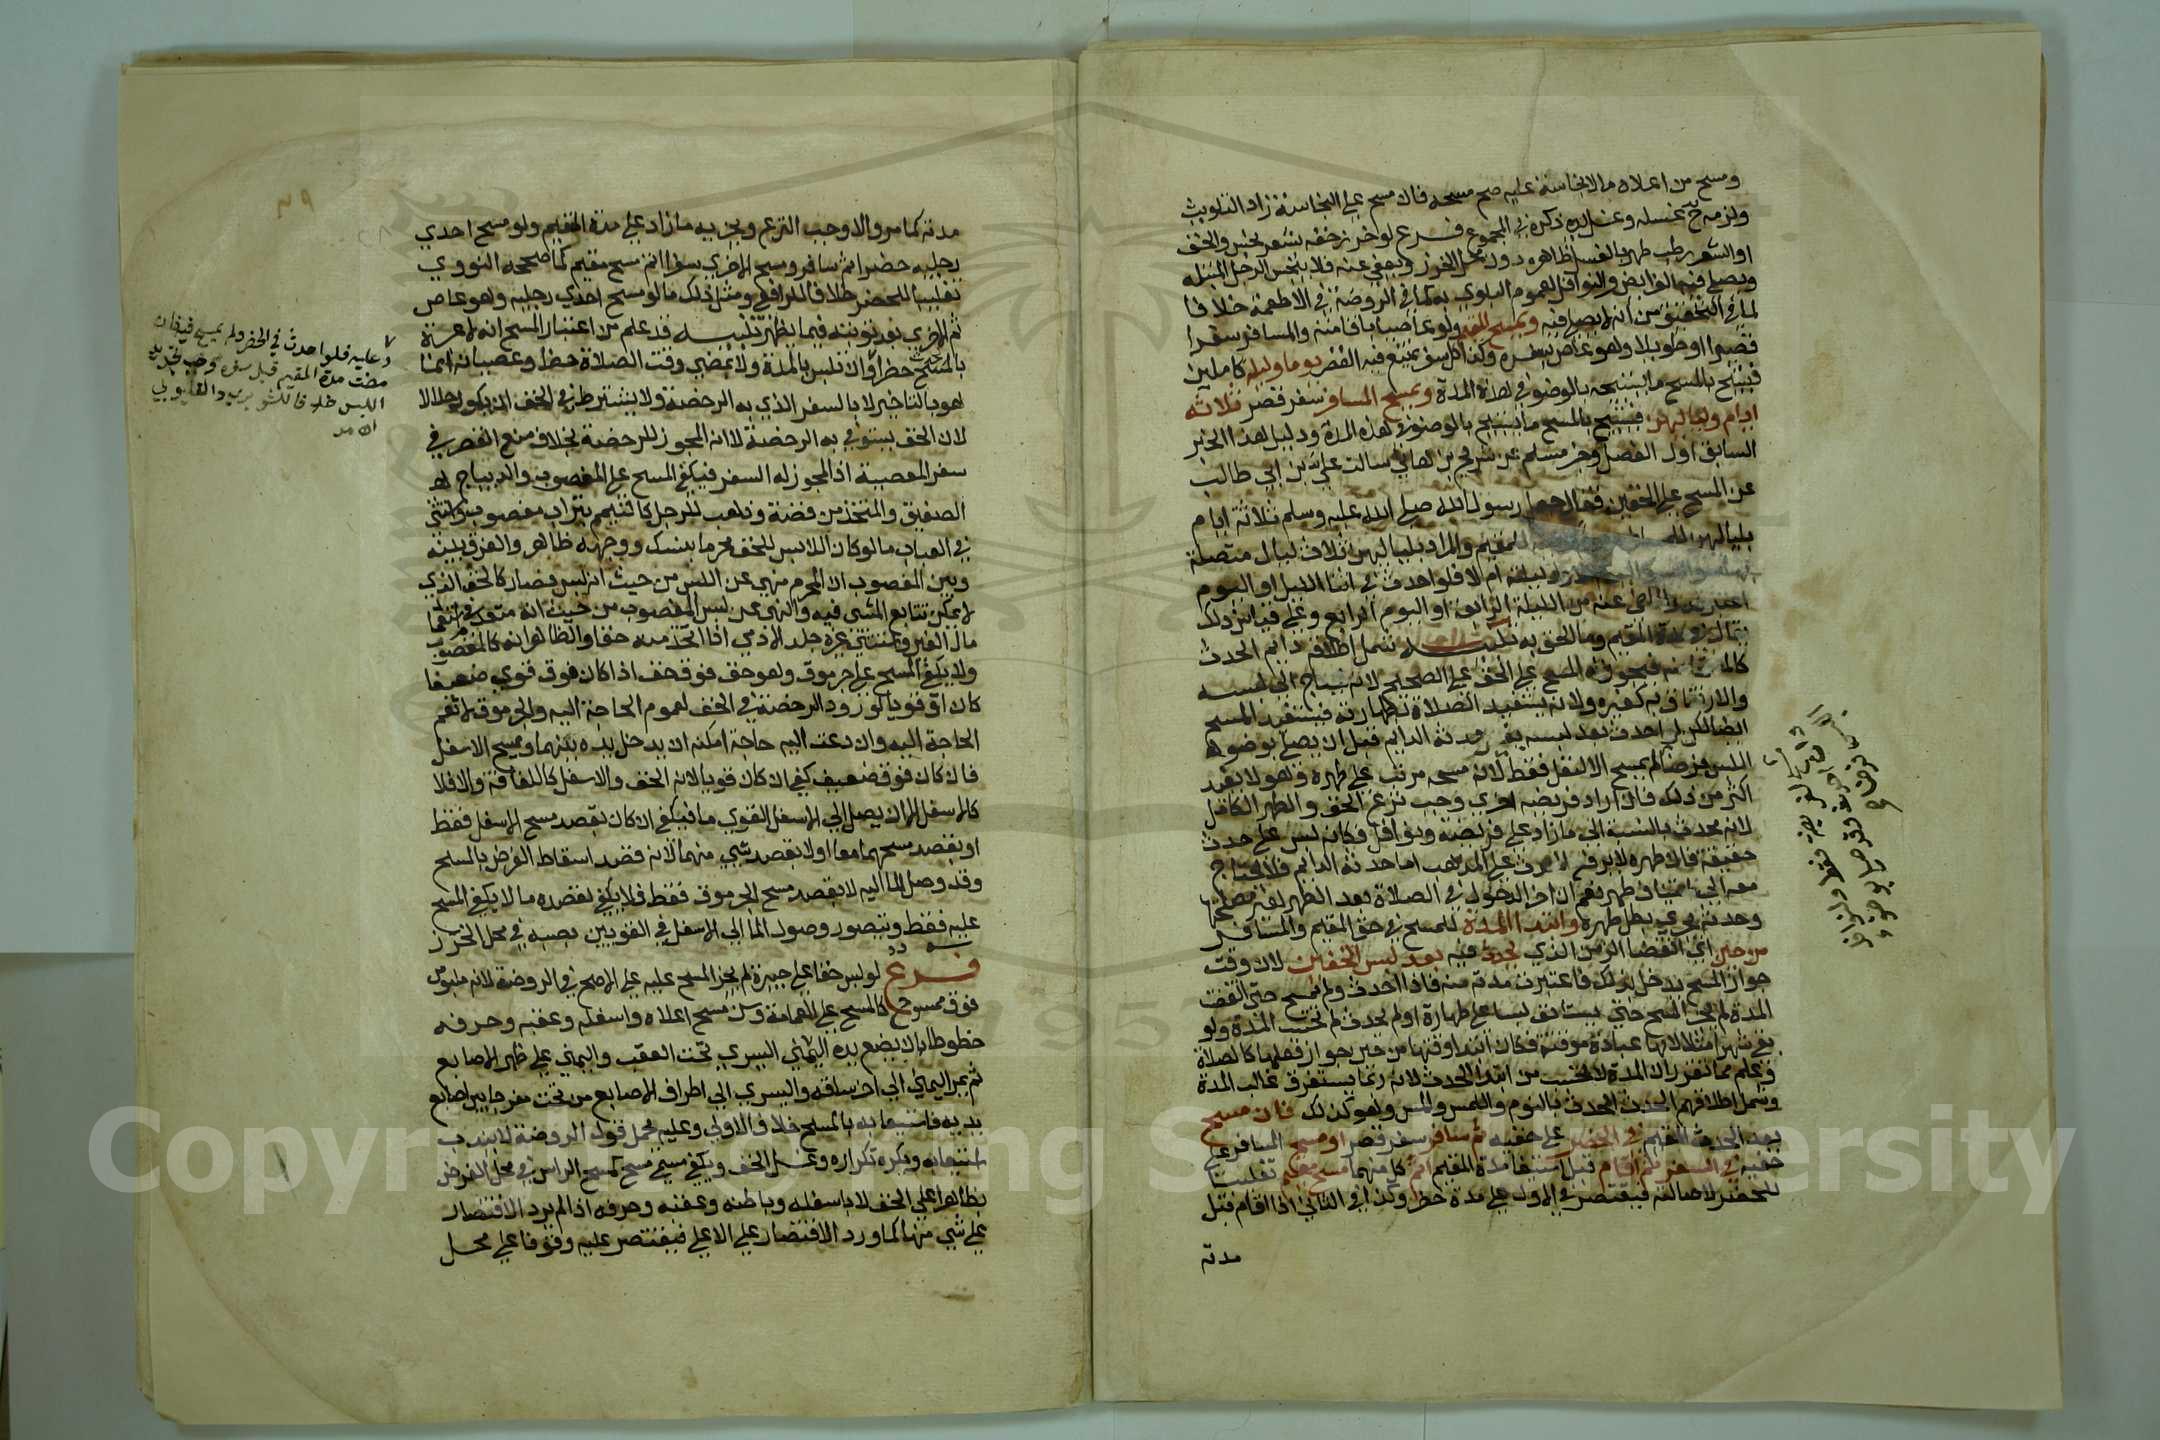 ومسح من اعلاه مالانجاسة عليه صح مسحه فان مسح على النجاسة زاد التلويث
ولزمه ح غسله وغسل يده ذكره في المجموع فرع لو خرز خفه بشعر نجس والخف
او الشعر رطب طهر بالغسل ظاهره دون محل الخرز ويعفى عنه فلا ينجس الرجل المبتلة
ويصلي فيه الفرايض والنوافل لعموم البلوى به كما في الروضة في الاطعمة خلافا
لما في التحقيق من انه لا يصلي فيه ويمسح المقيم ولو عاصيا باقامته والمسافر سفرا
قصيرا او طويلا وهو عاص بسفره وكذا كل سفر يمتنع فيه القصر يوما وليلة كاملين
فيستبيح بالمسح ما يستبيحه بالوضوء في هذه المدة ويمسح المسافر سفر قصر ثلاثة
ايام ولياليهن فيستبيح بالمسح ما يستبيح بالوضوء في هذه المدة ودليل هذا الخبر
السابق اول الفصل وخبر مسلم عن شريح بن هانئ سالت علي بن ابي طالب
عن المسح على الخفين فقال جعل رسول الله صلى الله عليه وسلم ثلاثة ايام
بلياليهن للمقيم والمراد بلياليهن ثلاث ليال متصلة
وليلة ام لا فلو احدث في اثنا الليل او اليوم
عنه من الليلة الرابعة او اليوم الرابع وعلى قياس ذلك
يقال في مدة المقيم وما الحق به تنبيه شمل اطلاقه دايم الحدث
كالمستحاضة فيجوز له المسح على الخف على الصحيح لانه يحتاج الى لبسه
والارتفاق به كغيره ولانه يستفيد الصلاة بطهارته فيستفيد المسح
ايضا لكن لو احدث بعد لبسه غير حدثه الدايم قبل ان يصلي بوضوء
اللبس فرضا لم يمسح الا لنفل فقط لان مسحه مرتب على طهره وهو لا يفيد
اكثر من ذلك فان اراد فريضة اخرى وجب نزع الخف والطهر الكامل
لانه محدث بالنسبة الى ما زاد على فريضة ونوافل فكانه لبس على حدث
حقيقة فان طهره لا يرفع الحدث على المذهب اما حدثه الدايم فلا يحتاج
معه الى استيناف طهر نعم ان اخر الدخول في الصلاة بعد الطهر لغير مصلحتها
وحدثه يجري بطل طهره وابتدا المدة للمسح في حق المقيم والمسافر
من حين اي انقضا الزمن الذي يحدث فيه بعد لبس الخفين لان وقت
جواز المسح يدخل بذلك فاعتبرت مدته منه فاذا احدث ولم يمسح حتى انقضت
المدة لم يجز المسح حتى يستانف لبسا على طهارة او لم يحدث لم تحسب المدة ولو
بقي شهرا مثلا لانها عبادة موقتة فكان ابتدا وقتها من حين جواز فعلها كالصلاة
وعلم مما تقرر ان المدة لا تحسب من ابتدا الحدث لانه ربما يستغرق غالب المدة
وشمل اطلاقهم الحدث الحدث بالنوم واللمس والمس وهو كذلك فان مسح
بعد الحدث المقيم في الحضر على خفيه ثم سافر سفر قصر او مسح المسافر على
خفيه في السفر ثم اقام قبل استيفا مدة المقيم اتم كل منهما مسح مقيم تغليبا
للحضر لاصالته فيقتصر في الاول على مدة حضر وكذا في الثاني اذا اقام قبل
مدته
مدته كما مر والا وجب النزع ويجزيه ما زاد على مدة المقيم ولو مسح احدى
رجليه حضرا ثم سافر ومسح الاخرى سفرا اتم مسح مقيم كما صححه النووي
تغليبا للحضر خلافا للرافعي ومثل ذلك ما لو مسح احدى رجليه وهو عاص
ثم الاخرى بعد توبته فيما يظهر تنبيه قد علم من اعتبار المسح انه لا عبرة
بالحدث حضرا وان تلبس بالمدة ولا بمضي وقت الصلاة حضرا وعصيانه انما
هو بالتاخير لا بالسفر الذي به الرخصة ولا يشترط في الخف ان يكون حلالا
لان الخف يستوفى به الرخصة لا انه المجوز للرخصة بخلاف منع القصر في
سفر المعصية اذ المجوز له السفر فيكفي المسح على المغصوب والديباج
الصفيق والمتخذ من فضة وذهب للرجل كالتيمم بتراب مغصوب واستثنى
في العباب ما لو كان اللابس للخف محرما بنسك ووجهه ظاهر والفرق بينه
وبين المغصوب ان المحرم منهي عن اللبس من حيث انه لبس فصار كالخف الذي
لا يمكن تتابع المشي فيه والنهي عن لبس المغصوب من حيث انه متعد في استعمال
مال الغير واستثنى غيره جلد الادمي اذا اتخذ منه خفا والظاهر انه كالمغصوب
ولا يكفي المسح على جرموق وهو خف فوق خف اذا كان فوق قوي ضعيفا
كان او قويا لورود الرخصة في الخف لعموم الحاجة اليه والجرموق لا تعم
الحاجة اليه وان دعت اليه حاجة امكنه ان يدخل يده بينهما ويمسح الاسفل
فان كان فوق ضعيف كفى ان كان قويا لانه الخف والاسفل كاللفافة والا فلا
كالاسفل الا ان يصل الى الاسفل القوي ما فيكفي ان كان بقصد مسح الاسفل فقط
او بقصد مسحهما معا او لا بقصد شي منهما لانه قصد اسقاط الفرض بالمسح
وقد وصل الما اليه لا بقصد مسح الجرموق فقط فلا يكفي لقصده ما لا يكفي المسح
عليه فقط ويتصور وصول الما الى الاسفل في القويين بصبه في محل الخرز
فرع لو لبس خفا على جبيرة لم يجز المسح عليه على الاصح في الروضة لانه ملبوس
فوق ممسوح كالمسح على العمامة وسن مسح اعلاه واسفله وعقبه وحرفه
خطوطا بان يضع يده اليسرى تحت العقب واليمنى على ظهر الاصابع
ثم يمر اليمنى الى اخر ساقه واليسرى الى اطراف الاصابع من تحت مفرجا بين اصابع
يديه فاستيعابه بالمسح خلاف الاولى وعليه يحمل قول الروضة لا يندب
استيعابه ويكره تكراره وغسل الخف ويكفي مسمى مسح كمسح الراس في محل الفرض
بظاهر اعلى الخف لا باسفله وباطنه وعقبه وحرفه اذ لم يرد الاقتصار
على شي منها كما ورد الاقتصار على الاعلى فيقتصر عليه وقوفا على محل
وعليه فلو احدث في الحضر ولم يمسح فيه فان
مضت مدة المقيم قبل سفره وجب تجديد
اللبس خلافا للشوبري والقليوبي